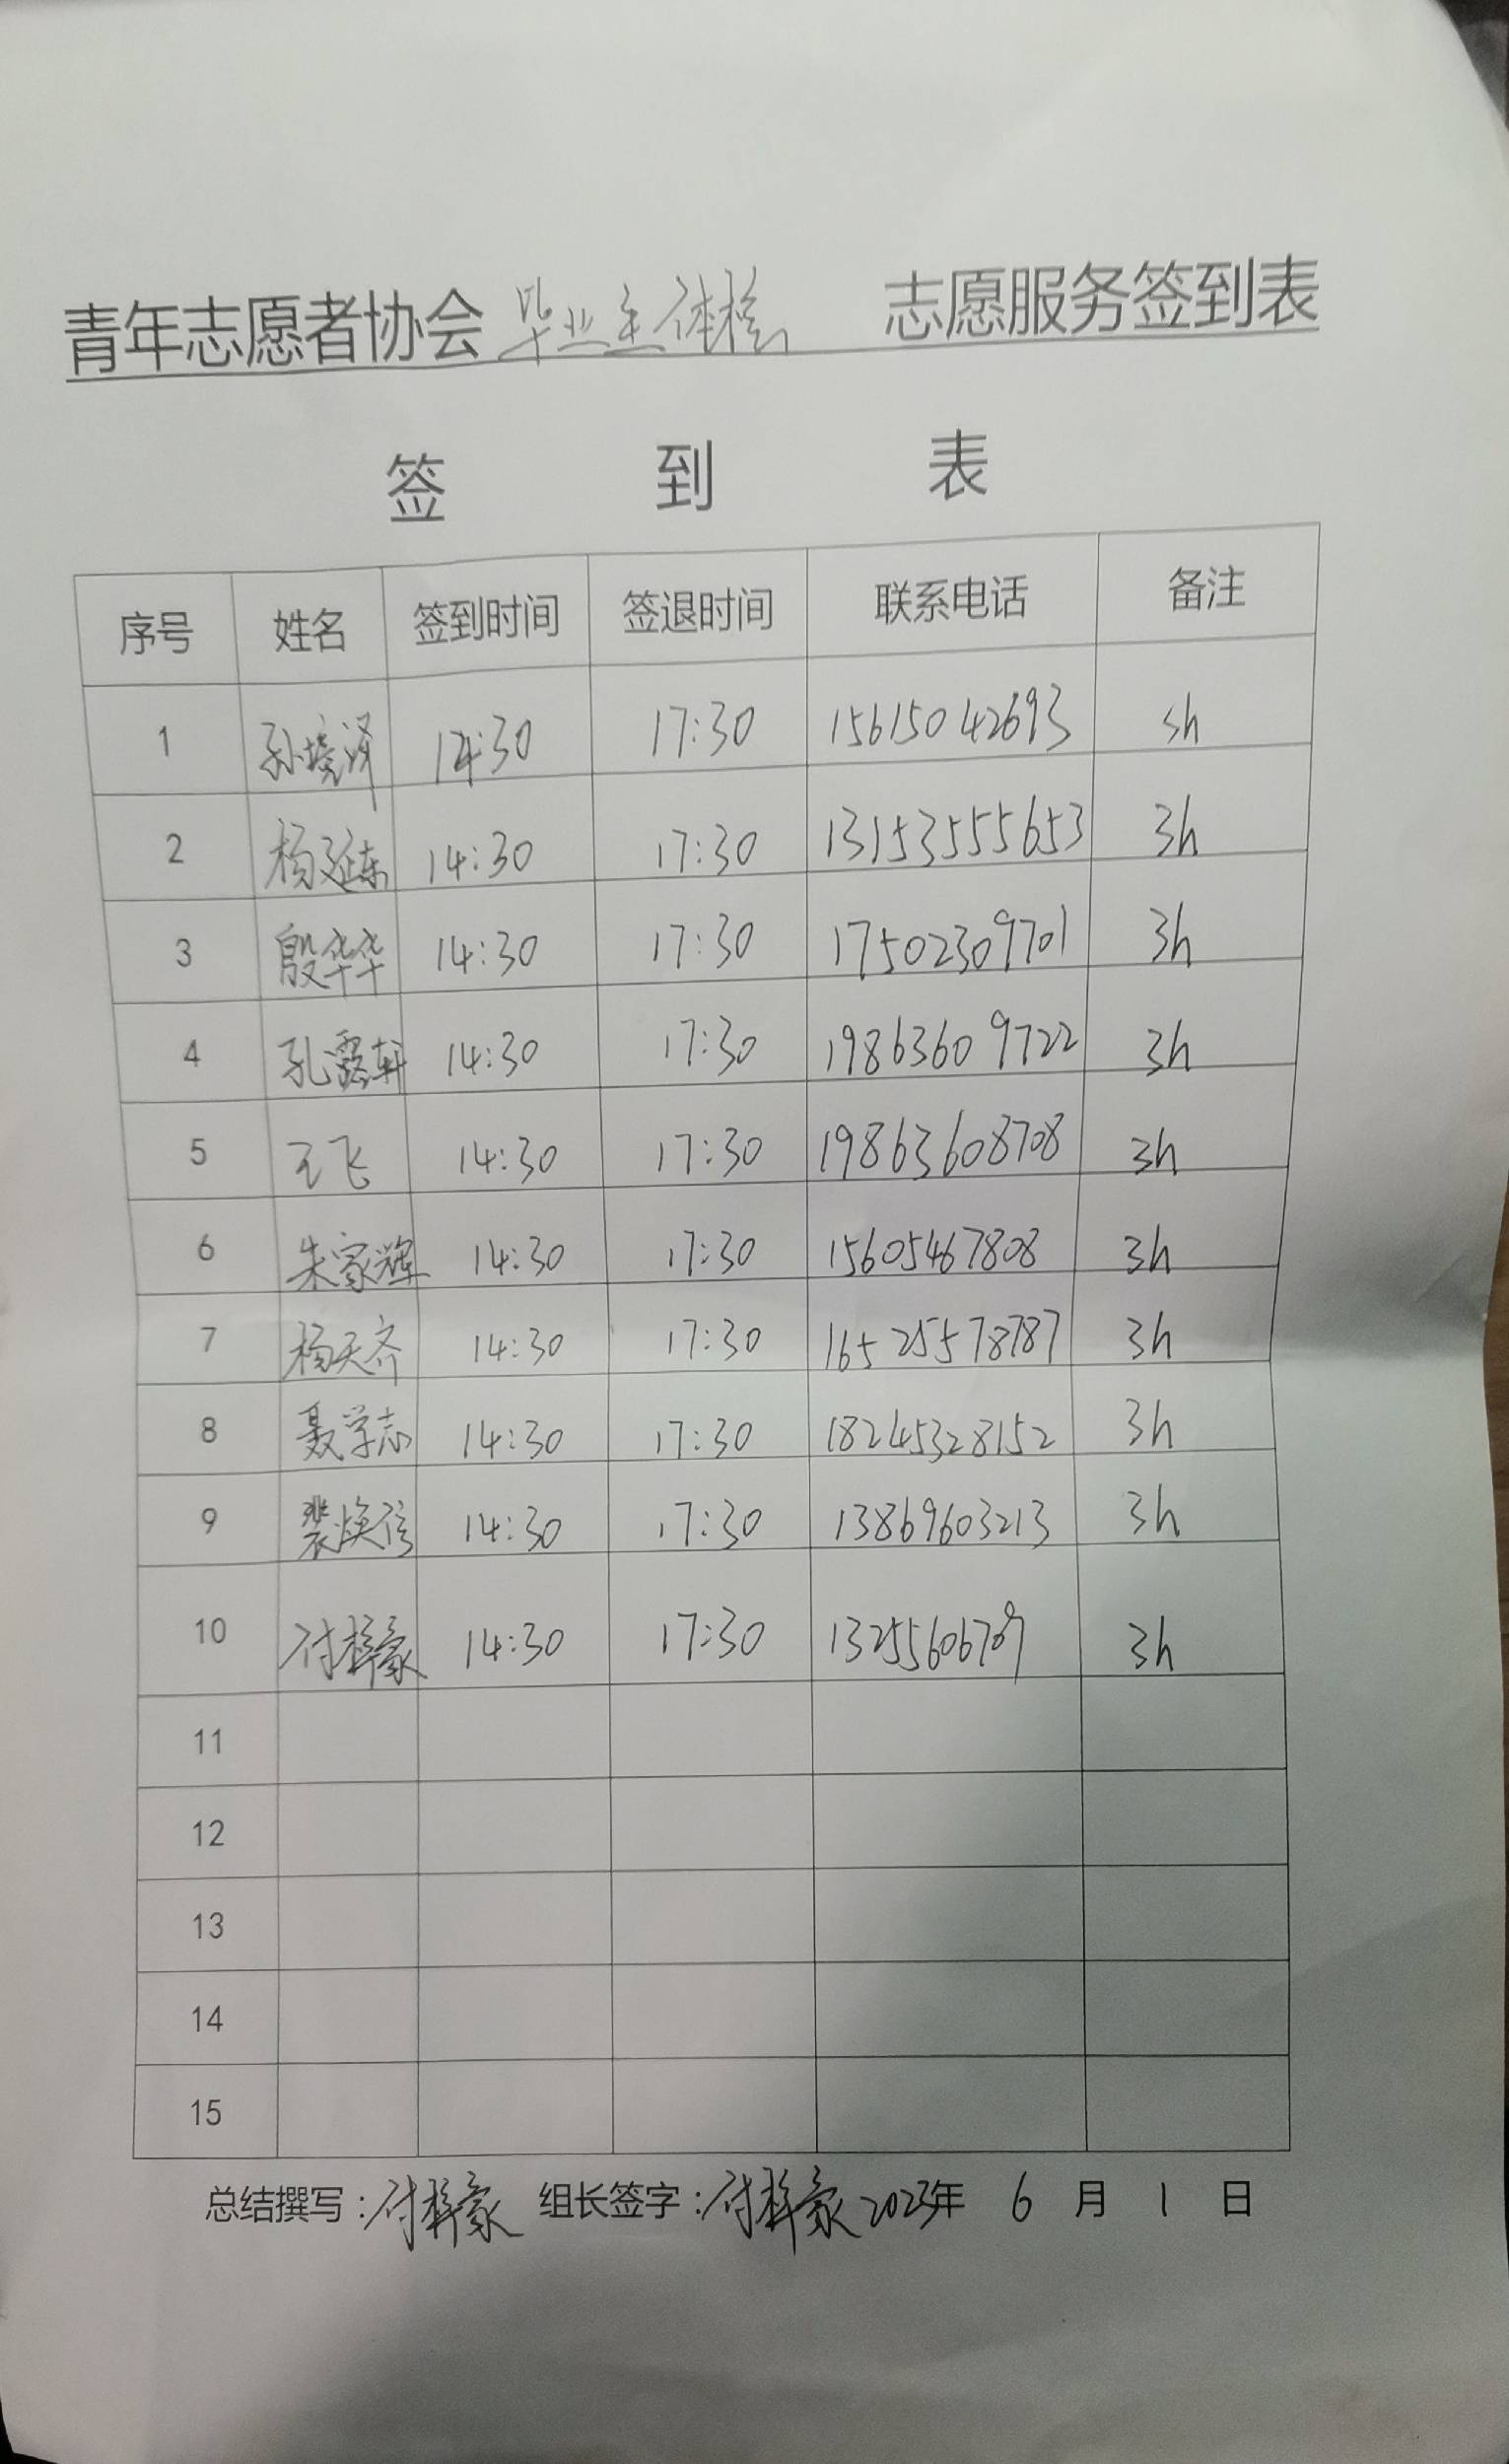 青年志愿者协会 毕业生体检 志愿服务签到表
签 到 表
序号 姓名 签到时间 签退时间 联系电话 备注
1 14:30 17:30 15615042693 3h
2 杨延东 14:30 17:30 13153555653 3h
3 殷华华 14:30 17:30 17502309701 3h
4 孔露轩 14:30 17:30 19863609722 3h
5 王飞 14:30 17:30 19863608708 3h
6 朱家辉 14:30 17:30 15605467808 3h
7 杨天齐 14:30 17:30 16525578787 3h
8 聂学志 14:30 17:30 18245328152 3h
9 裴焕信 14:30 17:30 13869603213 3h
10 付梓豪 14:30 17:30 3h
11
12
13
14
15
总结撰写:付梓豪 组长签字:付梓豪 2023年 6 月 1 日